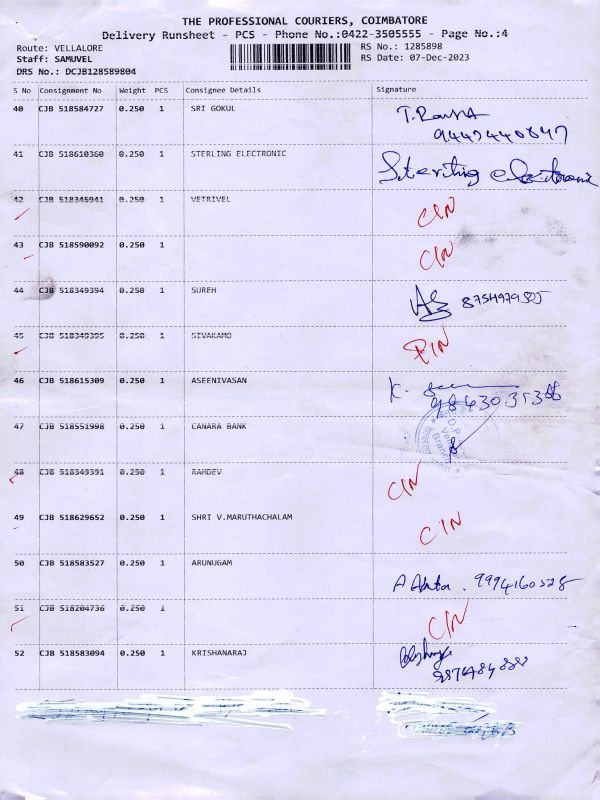 THE PROFESSIONAL COURIERS, COIMBATORE
Delivery Runsheet - PCS - Phone No.:0422-3505555 - Page No.:4
Route: VELLALORE RS No.: 1285898
Staff: SAMUVEL RS Date: 07-Dec-2023
DRS No.: DCJB128589804
S No Consignment No Weight PCS Consignee Details Signature
40 CJB 518584727 0.250 1 SRI GOKUL
41 CJB 518610360 0.250 1 STERLING ELECTRONIC
42 CJB 518345941 0.250 1 VETRIVEL CIN
43 CJB 518590092 0.250 1 CIN
44 CJB 518349394 0.250 1 SUREH
45 CJB 518349395 0.250 1 SIVAKAMO
46 CJB 518615309 0.250 1 ASEENIVASAN K.
47 CJB 518551998 0.250 1 CANARA BANK
48 CJB 518349391 0.250 1 RAMDEV CIN
49 CJB 518629652 0.250 1 SHRI V.MARUTHACHALAM CIN
50 CJB 518583527 0.250 1 ARUNUGAM
51 CJB 518204736 0.250 1 CIN
52 CJB 518583094 0.250 1 KRISHANARAJ